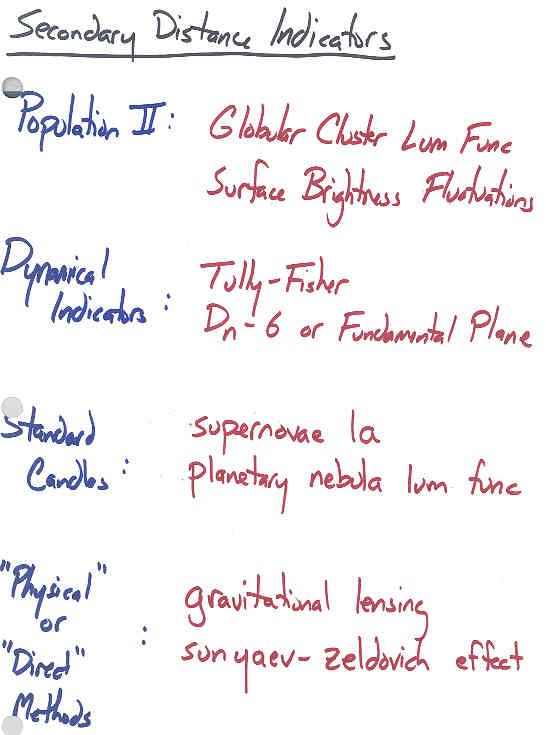 Secondary Distance Indicators
Population II: Globular Cluster Lum Func
Surface Brightness Fluctuations
Dynamical Tully-Fisher
Indicators: Dn-6 or Fundamental Plane
Standard supernovae 1a
Candles: planetary nebula lum func
"Physical" gravitational lensing
or :
"Direct" sunyaev-zeldovich effect
Methods